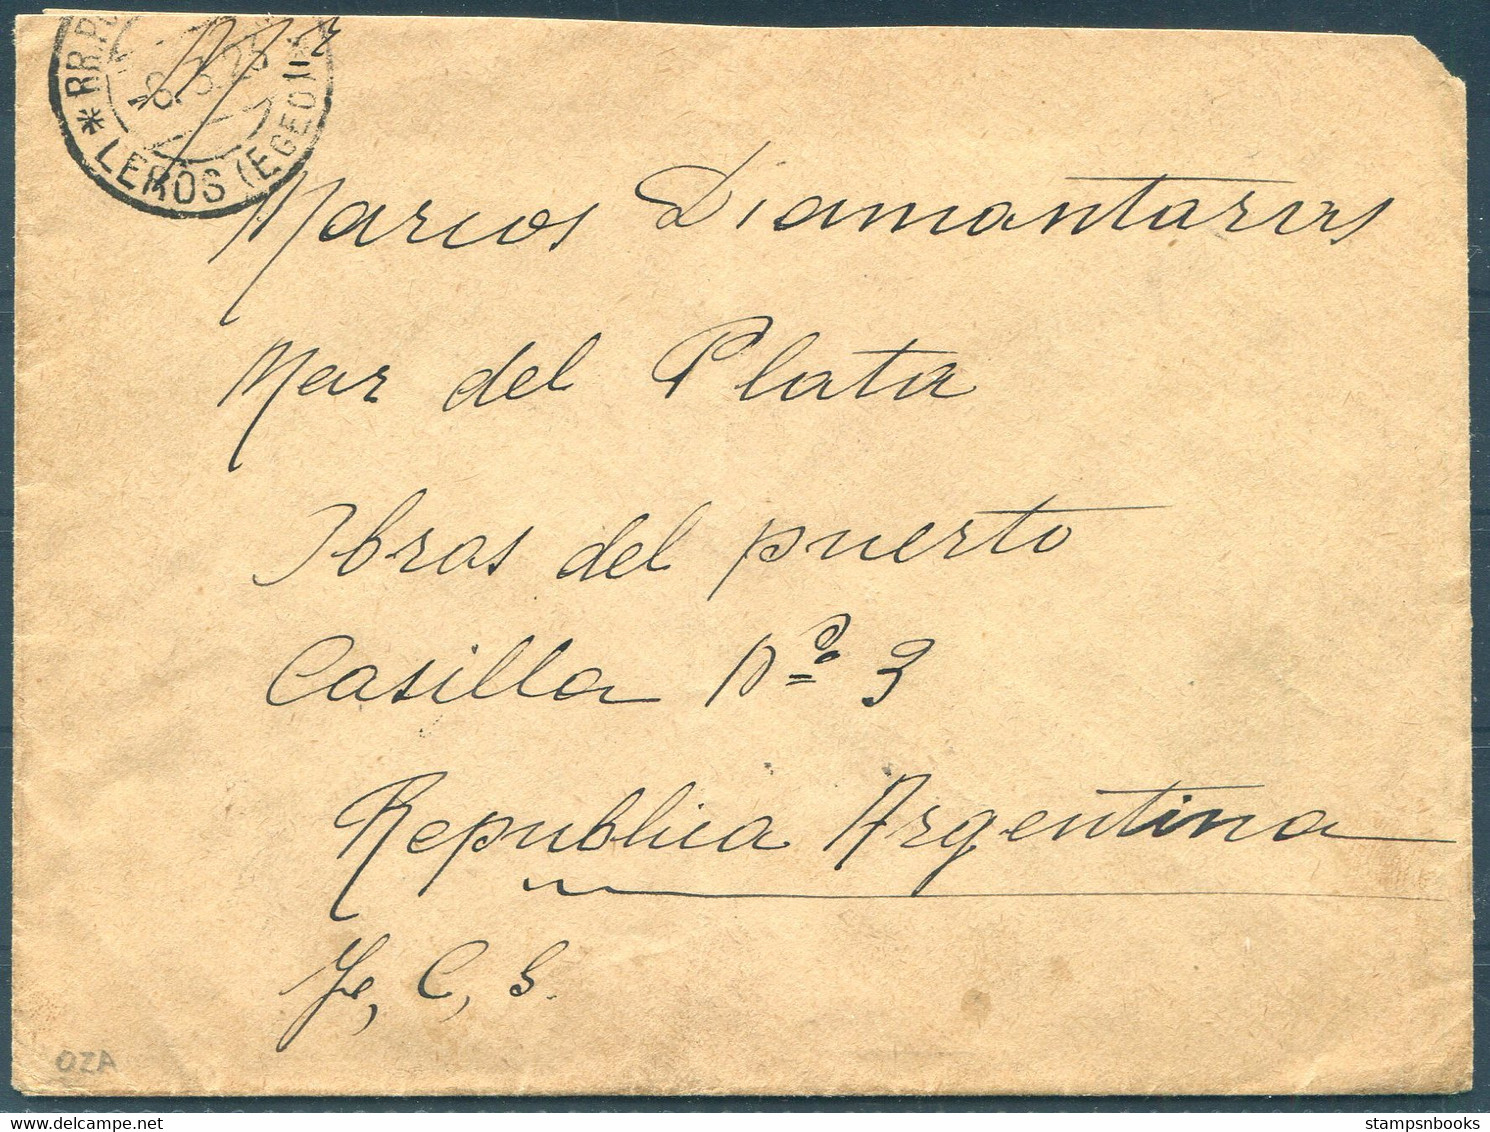 * RR.P
LEROS (EGEO) *
8.3.23
Marcos Diamantaras
Mar del Plata
Obras del puerto
Casilla No 3
Republica Argentina
C, S.
OZA
stampsnbooks